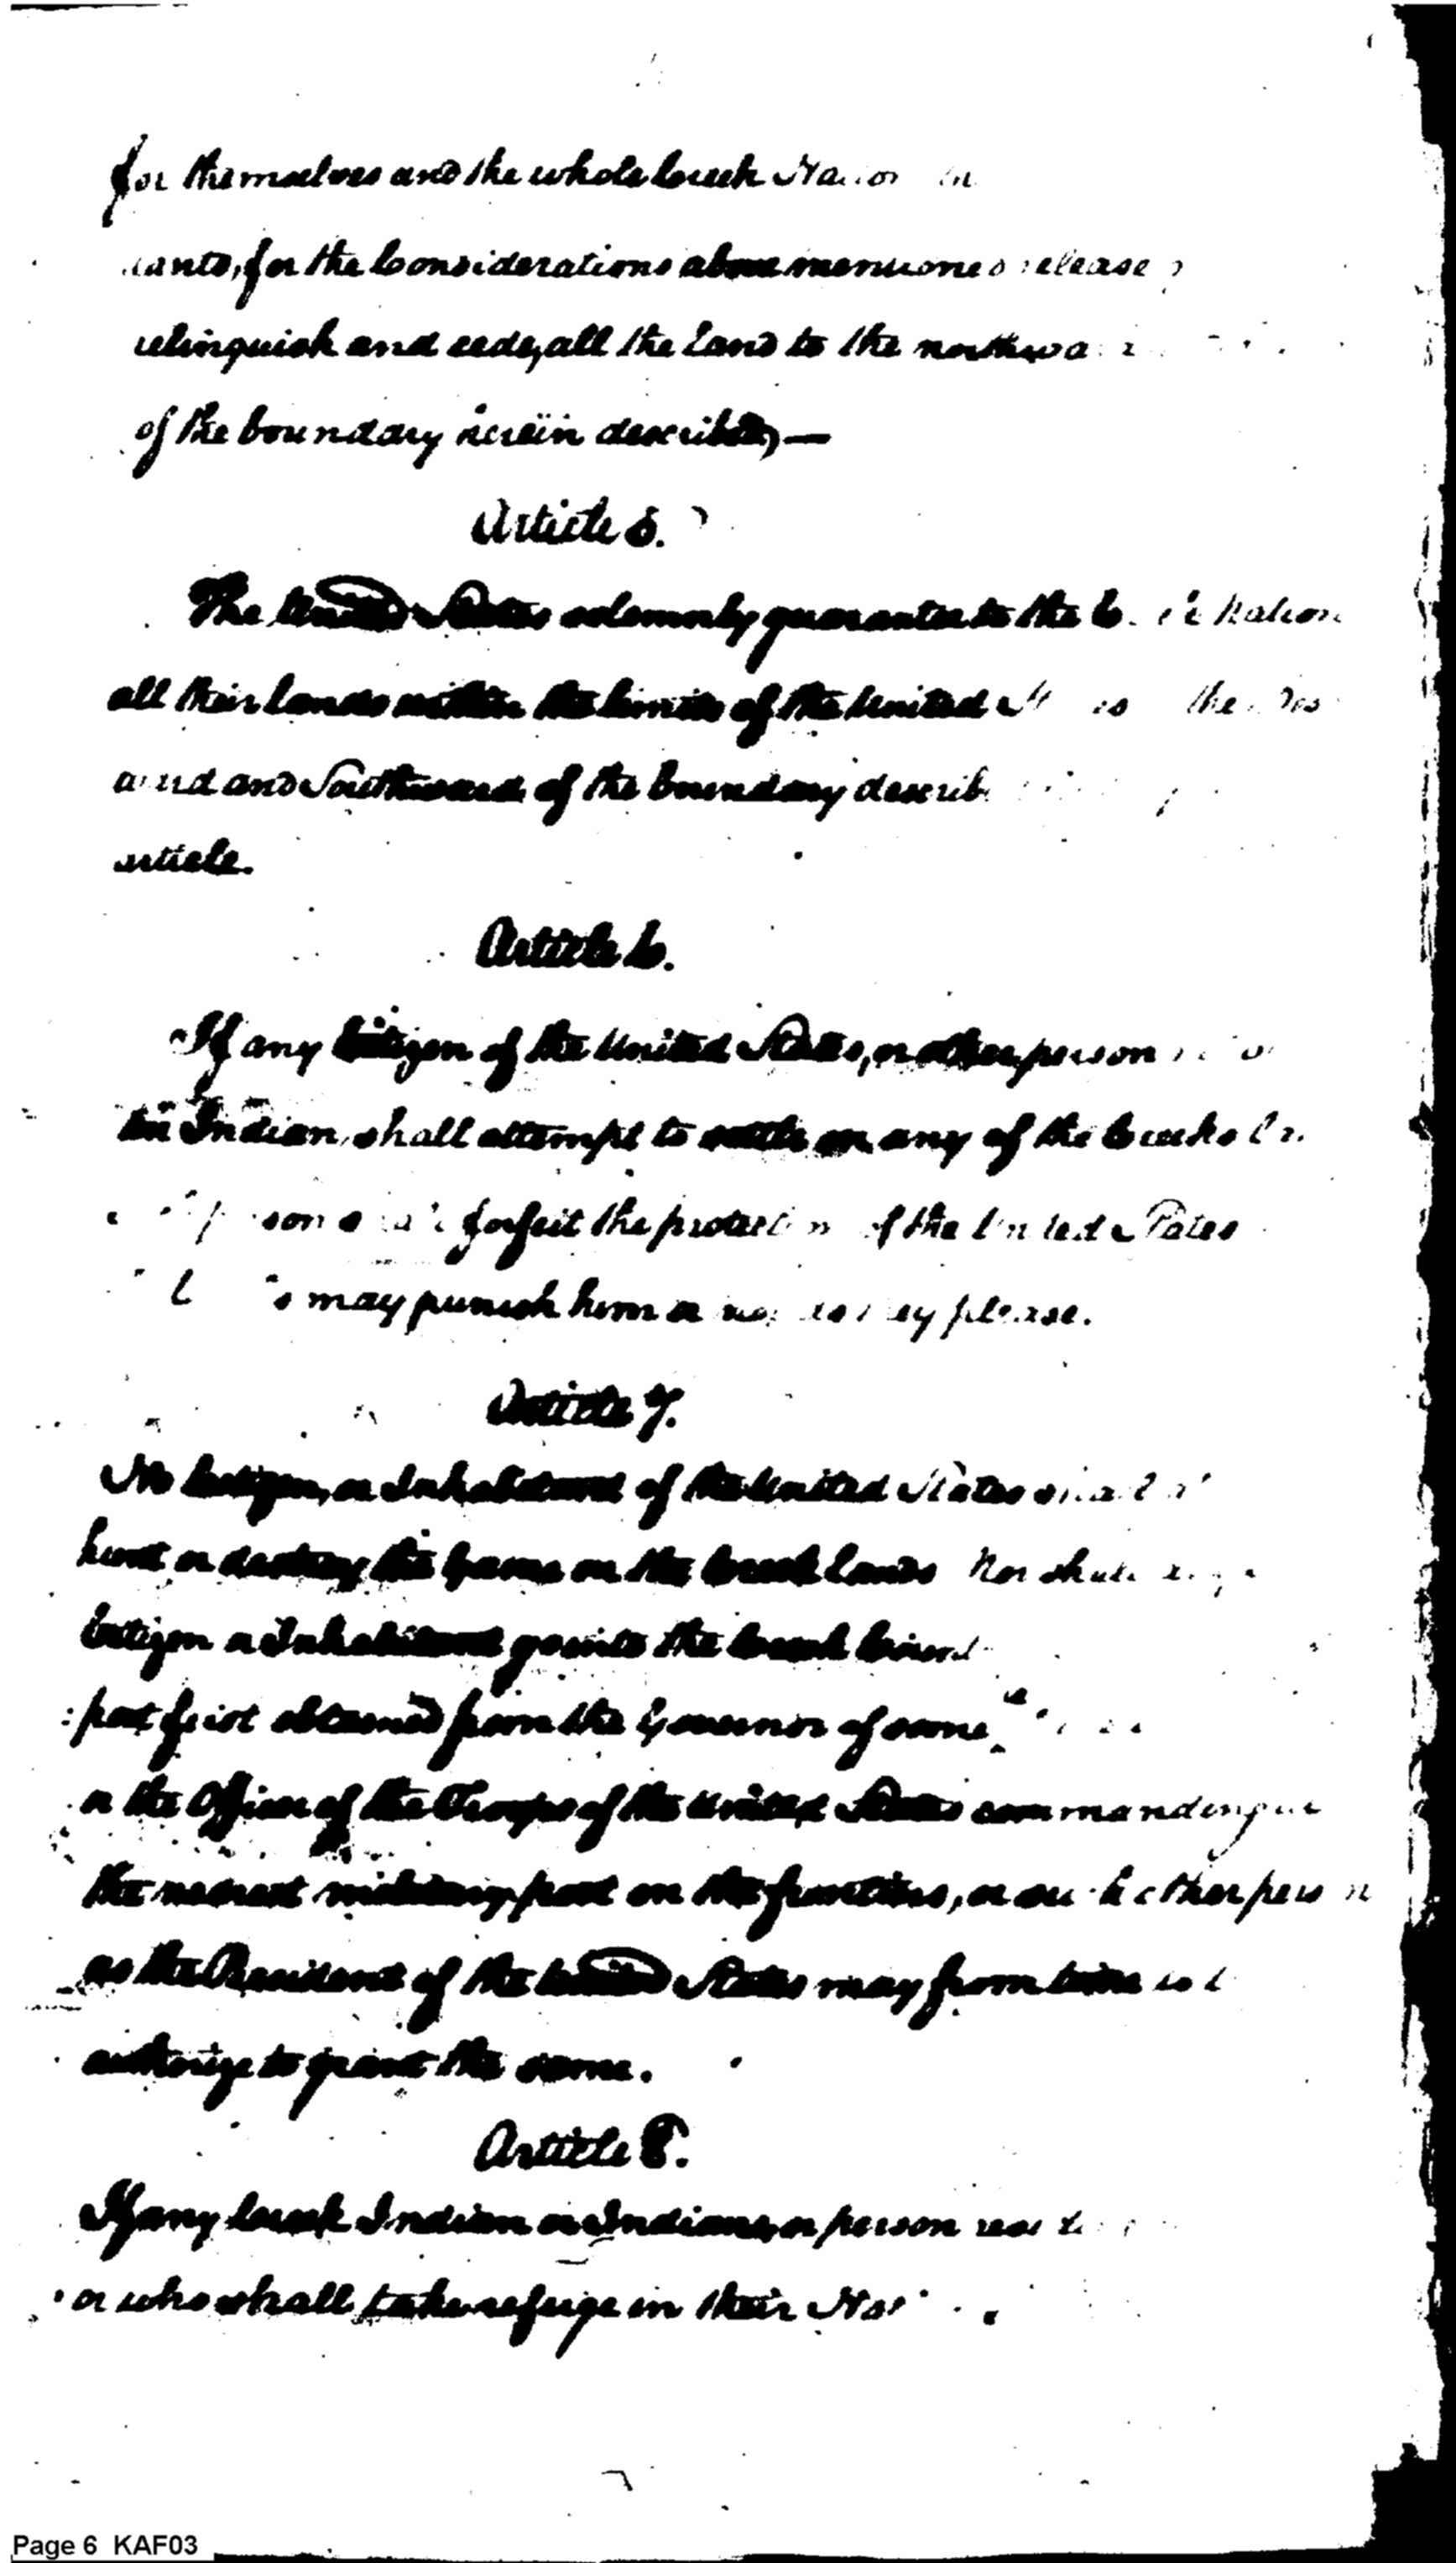 for themselves and the whole Creek Nation
for the Considerations above mentioned release
relinquish and cede, all the Land to the
of the boundary herein described,—
Article 5.
The United States solemnly guarantee to the Nation
all their lands within the limits of the United the
and Southward of the boundary
article.
Article 6.
If any Citizen of the United States, or other person
an Indian, shall attempt to settle on any of the Creeks
forfeit the protection of the United States
may punish him or not as they please.
Article 7.
No Citizen, or Inhabitant of the United States shall
hunt or destroy the Game on the Creek lands Nor shall
Citizen or Inhabitant go into the Creek
port first obtained from the Governor of some
or the Officer of the Troops of the United States commanding at
the nearest military post on the frontiers, or such other person
as the President of the United States may from time to
authorize to grant the same.
Article 8.
If any Creek Indian or Indians, or person
or who shall take refuge in their
Page 6 KAF03